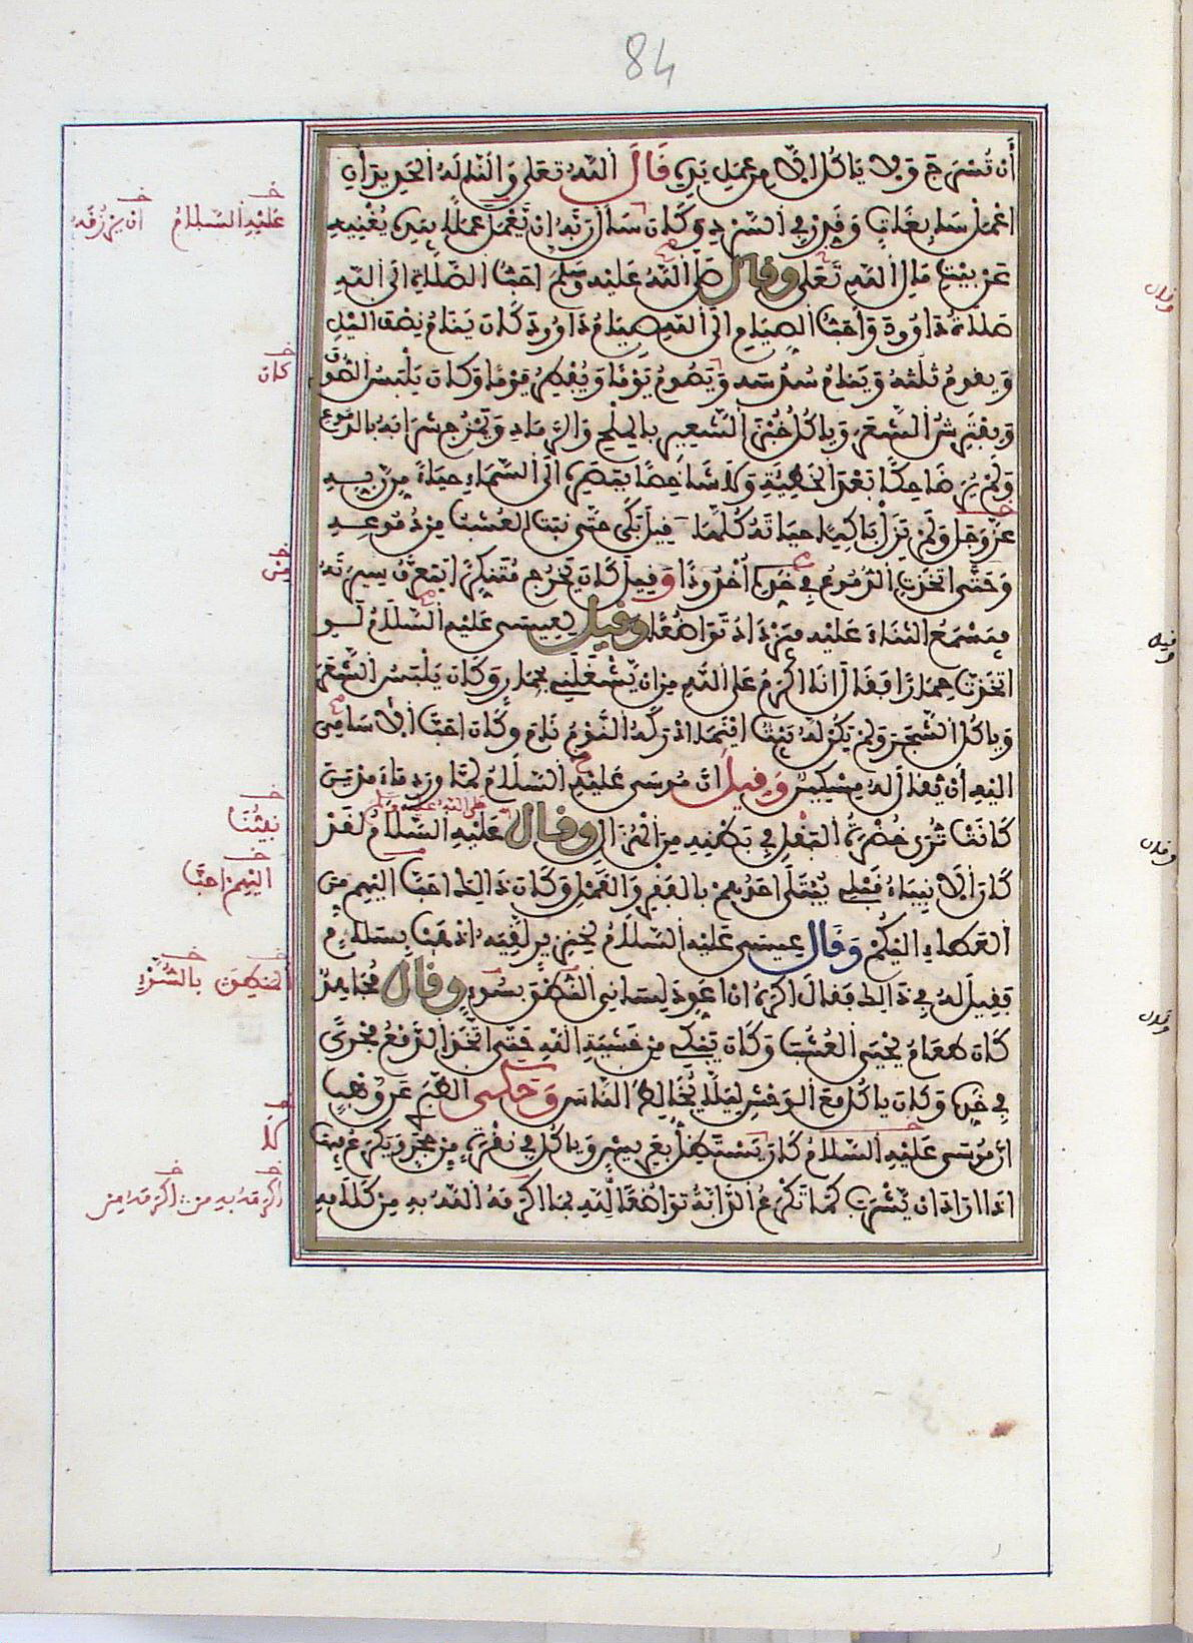 84
أَن تُسْرَجَ وَلَا يَاكُلُ إِلَّا مِن عَمَلِ يَدِهِ قَالَ اللَّهُ تَعَلَى وَأَلَنَّا لَهُ الْحَدِيدَ أَنِ
اعْمَلْ سَابِغَاتٍ وَقَدِّرْ فِي السَّرْدِ وَكَانَ سَأَلَ رَبَّهُ أَن يَّعْمَلَ عَمَلًا بِيَدِهِ يُغْنِيهِ
عَن بَيْتِ مَالِ اللَّهِ تَعَلَى وَقَالَ صَلَّى اللَّهُ عَلَيْهِ وَسَلَّمَ أَحَبُّ الصَّلَاةِ إِلَى اللَّهِ
صَلَاةُ دَاوُودَ وَأَحَبُّ الصِّيَامِ إِلَى اللَّهِ صِيَامُ دَاوُودَ كَانَ يَنَامُ نِصْفَ اللَّيْلِ
وَيَقُومُ ثُلُثَهُ وَيَنَامُ سُدُسَهُ وَيَصُومُ يَوْمًا وَيُفْطِرُ يَوْمًا وَكَانَ يَلْبَسُ الصُّوفَ
وَيَفْتَرِشُ الشَّعَرَ وَيَاكُلُ خُبْزَ الشَّعِيرِ بِالْمِلْحِ وَالرَّمَادِ وَيَمْزُجُ شَرَابَهُ بِالدُّمُوعِ
وَلَمْ يُرَ ضَاحِكًا بَعْدَ الْخَطِيئَةِ وَلَا شَاخِصًا بِبَصَرِهِ إِلَى السَّمَاءِ حَيَاءً مِن رَّبِّهِ
عَزَّ وَجَلَّ وَلَمْ يَزَلْ بَاكِيًا حَيَاتَهُ كُلَّهَا قِيلَ بَكَى حَتَّى نَبَتَ الْعُشْبُ مِن دُمُوعِهِ
وَحَتَّى اتَّخَذَتِ الدُّمُوعُ فِي خَدِّهِ أُخْدُودًا وَقِيلَ كَانَ يَخْرُجُ مُتَنَكِّرًا يَتَعَرَّفُ سِيرَتَهُ
فَيَسْمَعُ الثَّنَاءَ عَلَيْهِ فَيَزْدَادُ تَوَاضُعًا وَقِيلَ لِعِيسَى عَلَيْهِ السَّلَامُ لَوِ
اتَّخَذْتَ حِمَارًا فَقَالَ أَنَا أَكْرَمُ عَلَى اللَّهِ مِن أَن يَّشْغَلَنِي بِحِمَارٍ وَكَانَ يَلْبَسُ الشَّعَرَ
وَيَاكُلُ الشَّجَرَ وَلَمْ يَكُن لَّهُ بَيْتٌ أَيْنَمَا أَدْرَكَهُ النَّوْمُ نَامَ وَكَانَ أَحَبَّ الْأَسَامِي
إِلَيْهِ أَنْ يُقَالَ لَهُ مِسْكِينٌ وَقِيلَ إِنَّ مُوسَى عَلَيْهِ السَّلَامُ لَمَّا وَرَدَ مَاءَ مَدْيَنَ
كَانَتْ تُرَى خُضْرَةُ الْبَقْلِ فِي بَطْنِهِ مِنَ الْهُزَالِ وَقَالَ صلى الله عليه وسلم عَلَيْهِ السَّلَامُ لَقَدْ
كَانَ الْأَنْبِيَاءُ قَبْلِي يُبْتَلَى أَحَدُهُمْ بِالْفَقْرِ وَالْقَمْلِ وَكَانَ ذَالِكَ أَحَبَّ إِلَيْهِم مِّنَ
الْعَطَاءِ إِلَيْكُمْ وَقَالَ عِيسَى عَلَيْهِ السَّلَامُ لِخِنْزِيرٍ لَقِيَهُ اذْهَبْ بِسَلَامٍ
فَقِيلَ لَهُ فِي ذَالِكَ فَقَالَ أَكْرَهُ أَنْ أُعَوِّدَ لِسَانِي النُّطْقَ بِسُوءٍ وَقَالَ مُجَاهِدٌ
كَانَ طَعَامُ يَحْيَى الْعُشْبَ وَكَانَ يَبْكِي مِن خَشْيَةِ اللَّهِ حَتَّى اتَّخَذَ الدَّمْعُ مَجْرًى
فِي خَدِّهِ وَكَانَ يَاكُلُ مَعَ الْوَحْشِ لِيَلَّا يُخَالِطَ النَّاسَ وَحَكَى الطَّبَرِيُّ عَن وَهْبٍ
أَنَّ مُوسَى عَلَيْهِ السَّلَامُ كَانَ يَسْتَظِلُّ بِعَرِيشٍ وَيَاكُلُ فِي نُقْرَةٍ مِن حَجَرٍ وَيَكْرَعُ فِيهَا
إِذَا أَرَادَ أَن يَّشْرَبَ كَمَا تَكْرَعُ الدَّابَّةُ تَوَاضُعًا لِّلَّهِ بِمَا أَكْرَمَهُ اللَّهُ بِهِ مِن كَلَامِهِ
عَلَيْهِ السَّلَامُ أَن يَّرْزُقَهُ
كَانَ
مِنْ
نَبِيُّنَا
إِلَيْهِمْ أَحَبَّ
الْمَنْطِقَ بِالسُّوءِ
أَكْرَمَهُ بِهِ مِن أَكْرَمَهُ مِن
وقال
وقيل
وقال
وقال